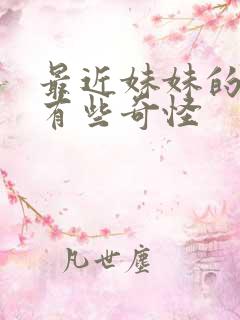 最近妹妹的
有些奇怪
凡世尘